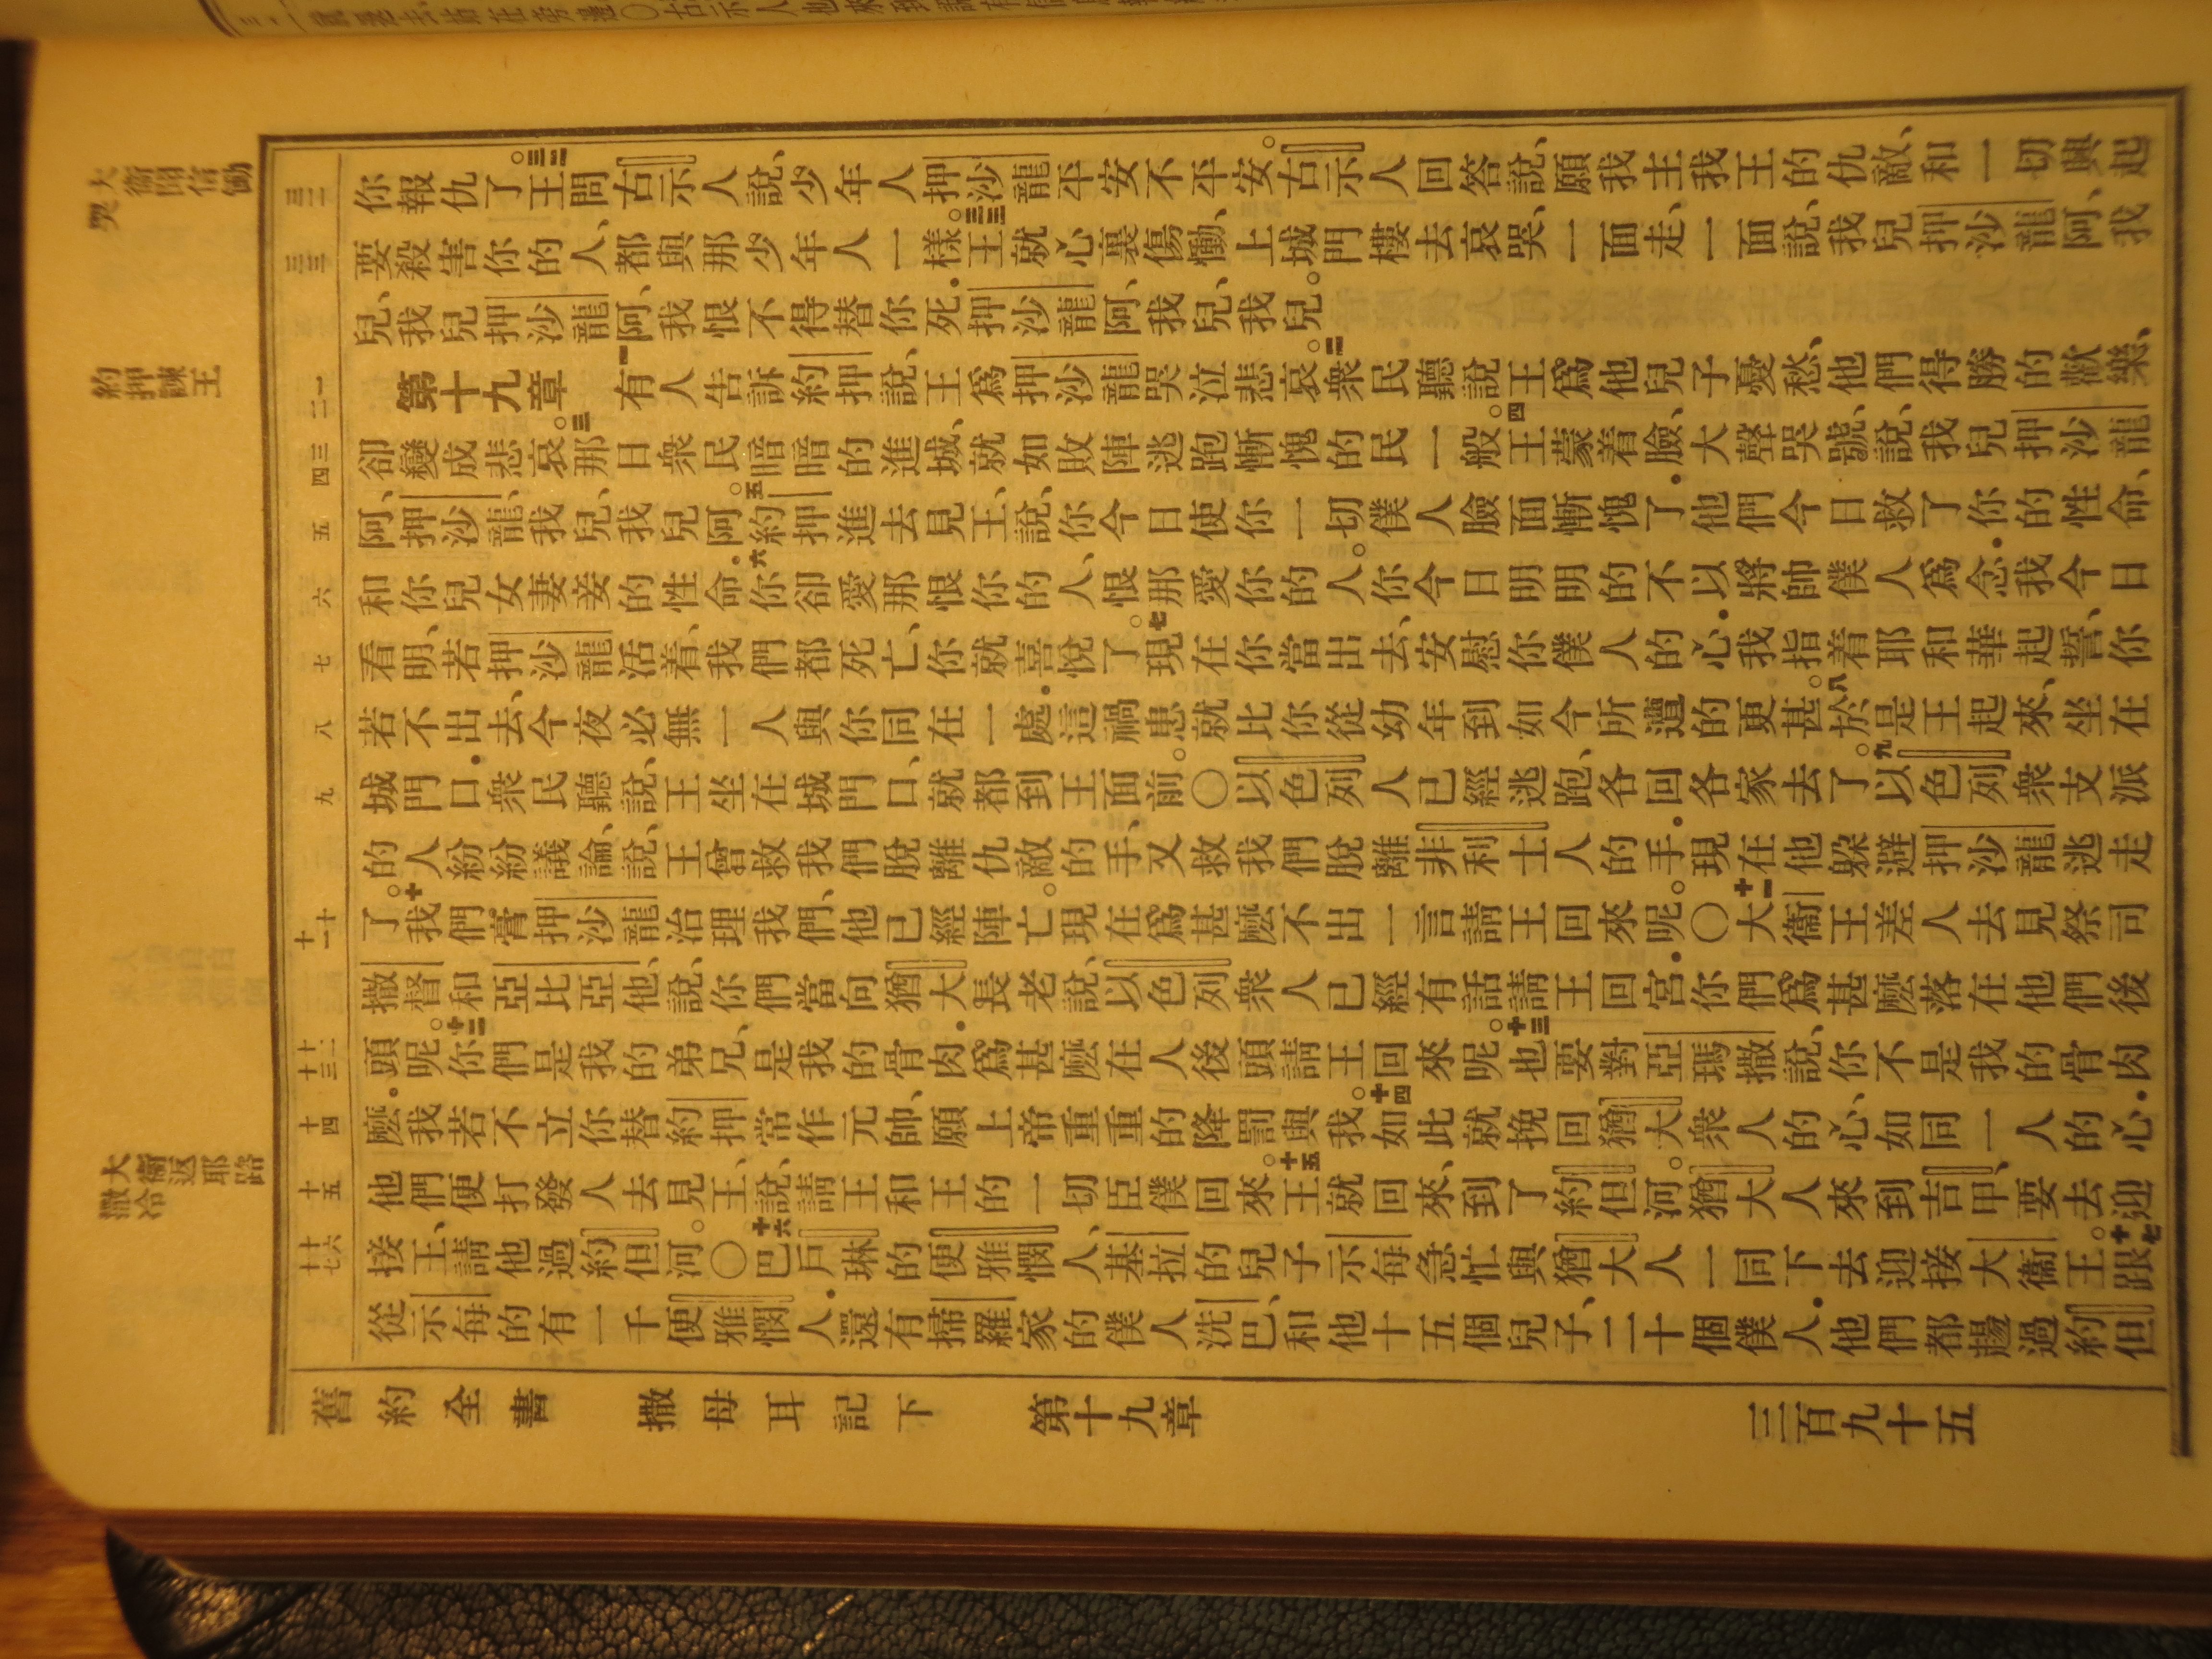 大衛聞信慟哭
約押諫王
大衛返耶路撒冷
三二
三三
一二
三四
五
六
七
八
九
十十一
十二十三
十四
十五
十六十七
你報仇了。三二王問古示人說、少年人押沙龍平安不平安。古示人回答說、願我主我王的仇敵、和一切興起
要殺害你的人、都與那少年人一樣。三三王就心裏傷慟、上城門樓去哀哭、一面走、一面說、我兒押沙龍阿、我
兒、我兒押沙龍阿、我恨不得替你死．押沙龍阿、我兒、我兒。
第十九章 一有人告訴約押說、王爲押沙龍哭泣悲哀。二衆民聽說王爲他兒子憂愁、他們得勝的歡樂、
卻變成悲哀。三那日衆民暗暗的進城、就如敗陣逃跑慚愧的民一般。四王蒙着臉、大聲哭號、說、我兒押沙龍
阿、押沙龍、我兒、我兒阿。五約押進去見王、說、你今日使你一切僕人臉面慚愧了．他們今日救了你的性命、
和你兒女妻妾的性命．六你卻愛那恨你的人、恨那愛你的人。你今日明明的不以將帥僕人爲念．我今日
看明、若押沙龍活着、我們都死亡、你就喜悅了。七現在你當出去、安慰你僕人的心．我指着耶和華起誓、你
若不出去、今夜必無一人與你同在一處．這禍患就比你從幼年到如今所遭的更甚。八於是王起來、坐在
城門口．衆民聽說、王坐在城門口、就都到王面前。〇以色列人已經逃跑、各回各家去了。九以色列衆支派
的人紛紛議論、說、王曾救我們脫離仇敵的手、又救我們脫離非利士人的手．現在他躱避押沙龍逃走
了。十我們膏押沙龍治理我們、他已經陣亡。現在爲甚麽不出一言請王回來呢。〇十一大衛王差人去見祭司
撒督和亞比亞他、說、你們當向猶大長老說、以色列衆人已經有話請王回宮．你們爲甚麽落在他們後
頭呢。十二你們是我的弟兄、是我的骨肉．爲甚麽在人後頭請王回來呢。十三也要對亞瑪撒說、你不是我的骨肉
麽．我若不立你替約押常作元帥、願上帝重重的降罰與我。十四如此就挽回猶大衆人的心、如同一人的心．
他們便打發人去見王、說、請王和王的一切臣僕回來。十五王就回來、到了約但河。猶大人來到吉甲、要去迎
接王、請他過約但河。〇十六巴戶琳的便雅憫人、基拉的兒子示每急忙與猶大人一同下去迎接大衛王。十七跟
從示每的有一千便雅憫人．還有掃羅家的僕人洗巴、和他十五個兒子、二十個僕人．他們都趟過約但
舊約全書 撒母耳記下 第十九章 三百九十五